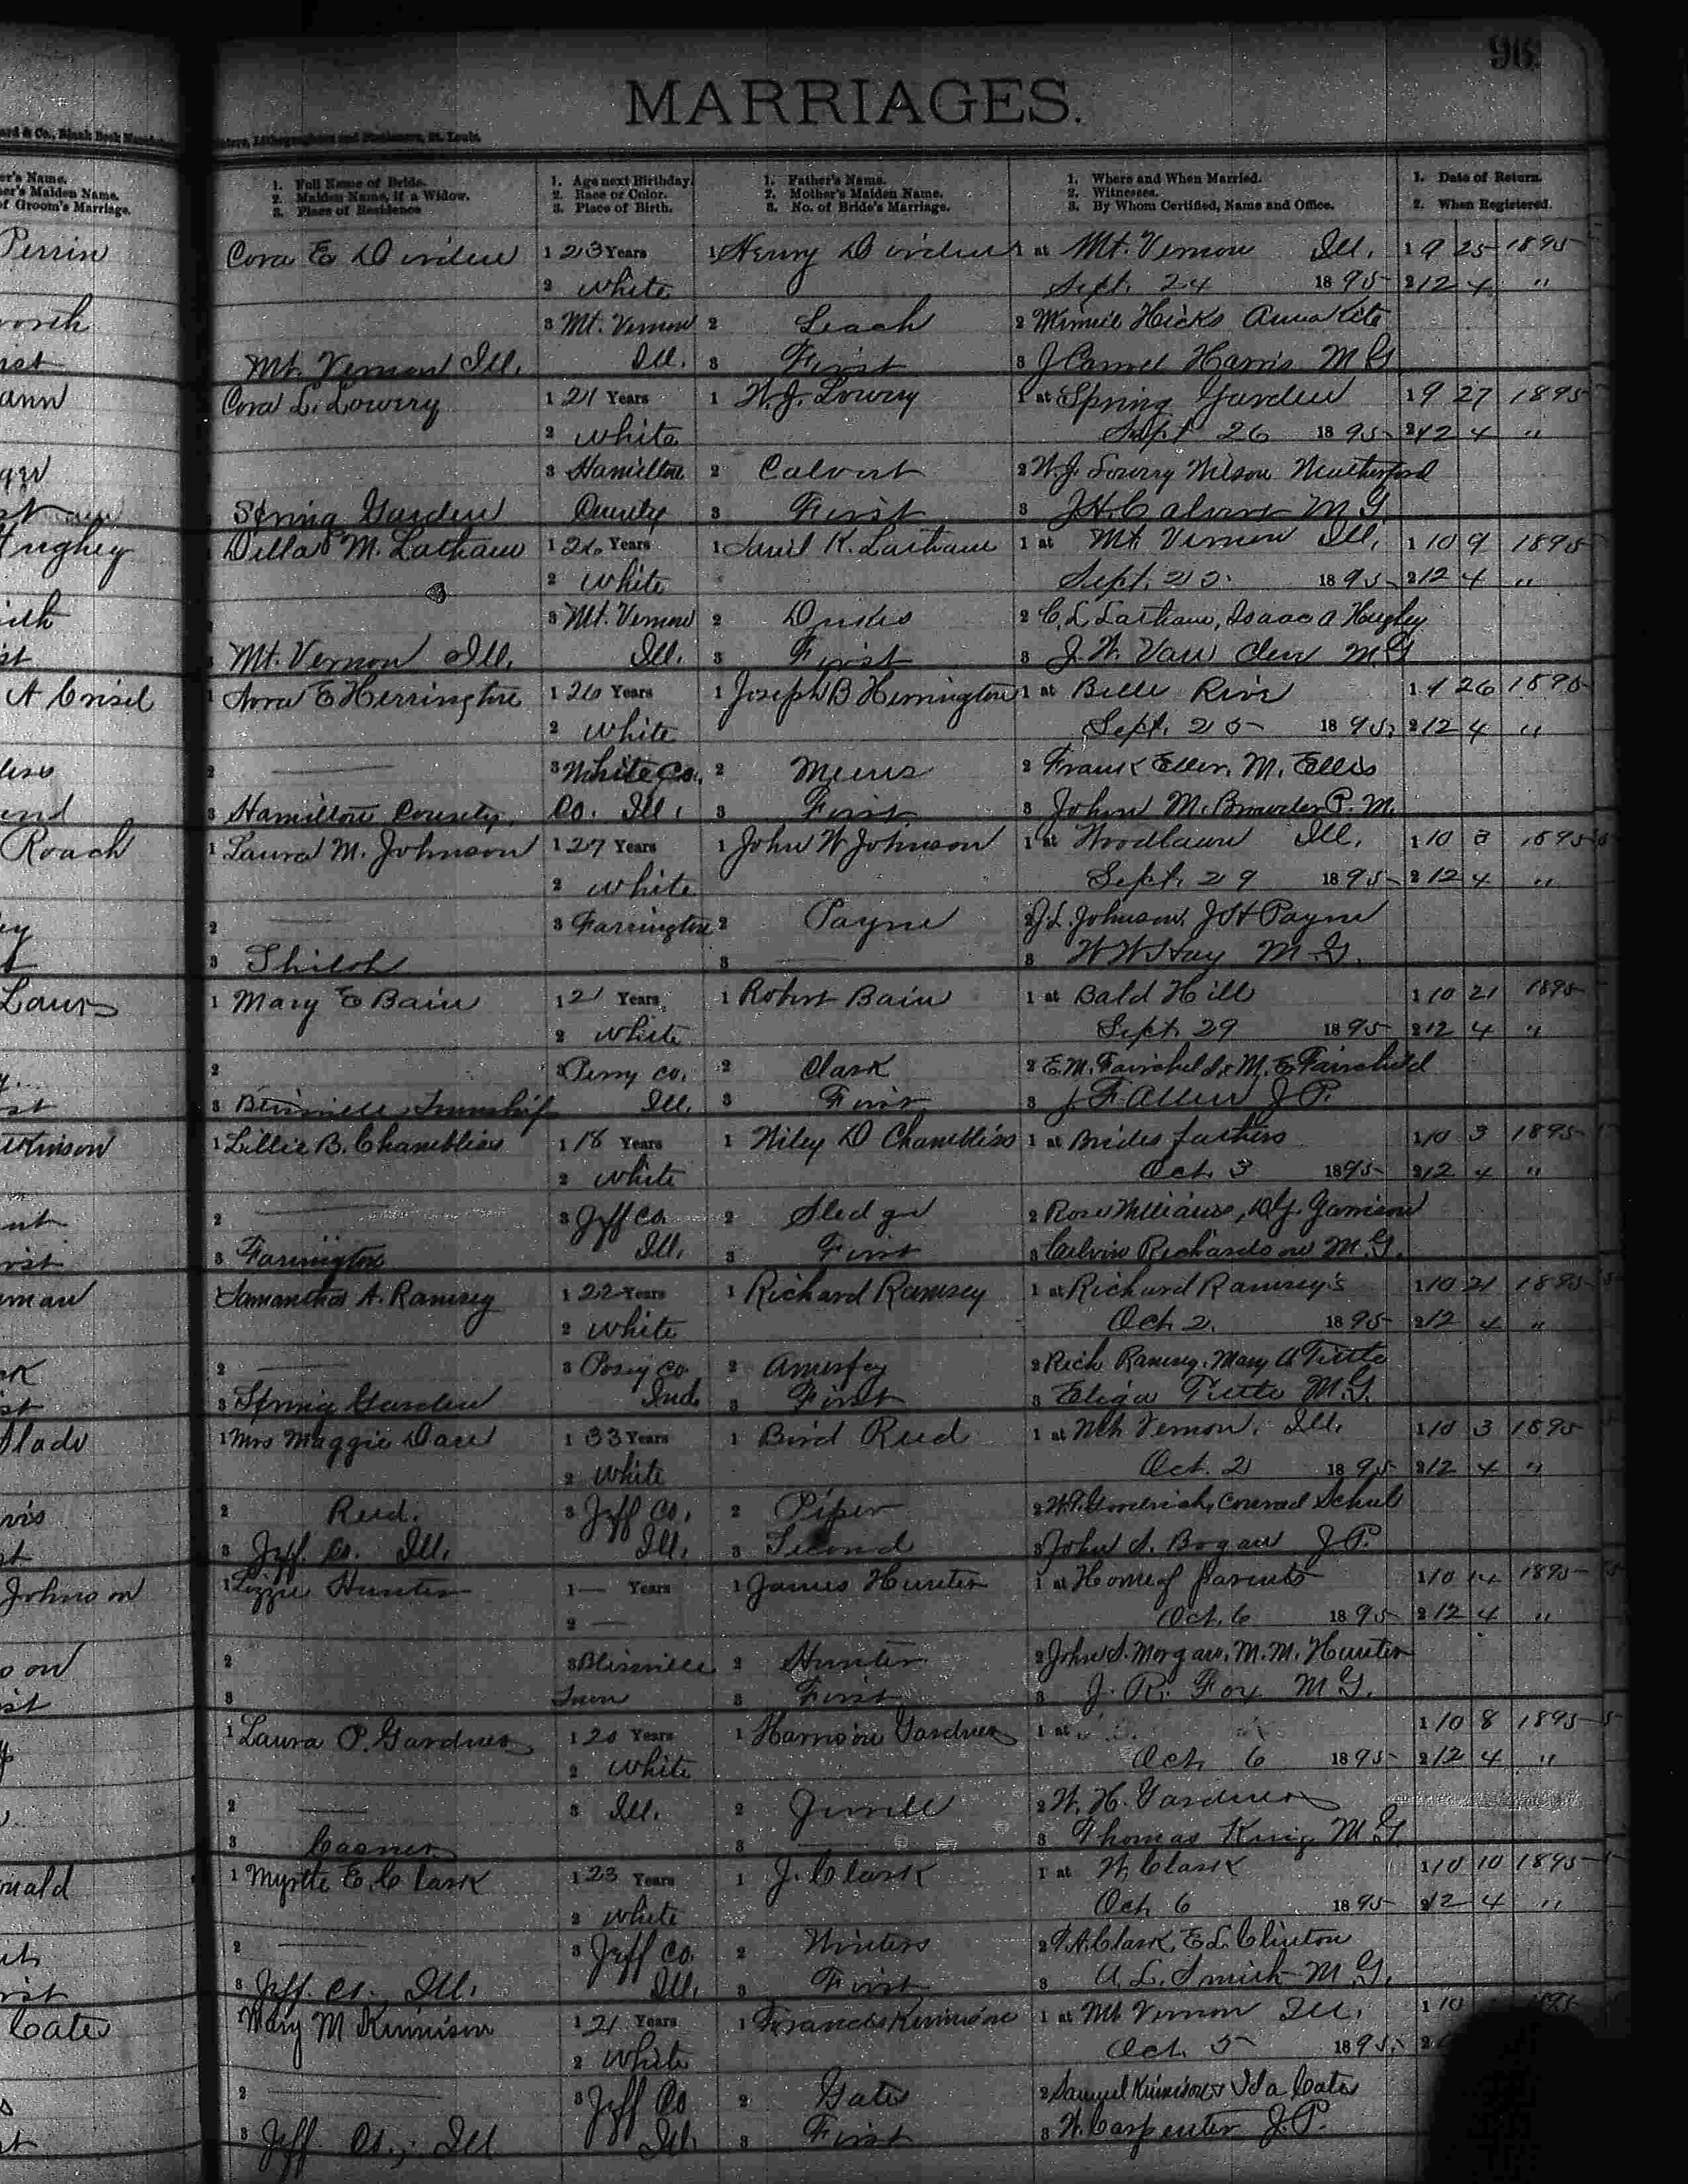 96
MARRIAGES.
ard & Co., Blank Book
Lithographers and Stationers, St. Louis.
er's Name.
er's Maiden Name.
of Groom's Marriage.
1. Full Name of Bride.
2. Maiden Name, if a Widow.
3. Place of Residence
1. Age next Birthday.
2. Race or Color.
3. Place of Birth.
1. Father's Name.
2. Mother's Maiden Name.
3. No. of Bride's Marriage.
1. Where and When Married.
2. Witnesses.
3. By Whom Certified, Name and Office.
1. Date of Return.
2. When Registered.
Perrin Cora E Dirden 1 23 Years 1 Henry Dirden 1 at Mt. Vernon Ill. 1 9 25 1895
2 White Sept. 24 1895 2 12 4 "
3 Mt. Vernon 2 Leach 2 Minnie Hicks Anna Kite
Mt. Vernon Ill. Ill. 3 First 3 J Harris M G
Cora L. Lowery 1 21 Years 1 W. J. Lowry 1 at Spring Garden 1 9 27 1895
2 White Sept 26 1895 2 12 4 "
3 Hamilton 2 Calvert 2 W. J. Lowry Wilson
Spring Garden County 3 First 3 J. H. Calvert M G.
Hughey Della M. Latham 1 26 Years 1 K. Latham 1 at Mt. Vernon Ill. 1 10 9 1895
2 White Sept. 1895 2 12 4 "
3 Mt. Vernon 2 2 C. L Latham, Isaac A Hughey
3 Mt. Vernon Ill. Ill. 3 First 3 J. W. Van Cleve M G
A Crisel 1 E Herrington 1 26 Years 1 Joseph B Herrington 1 at Belle Rive 1 9 26 1895
2 White Sept. 25 1895, 2 12 4 "
2 3 White Co. 2 2 Frank Eller. M. Ellis
3 Hamilton County. Co. Ill. 3 First 3 John M. P. M.
Roach 1 Laura M. Johnson 1 27 Years 1 John W Johnson 1 at Woodlawn Ill. 1 10 3 1895
2 White Sept. 29 1895 2 12 4 "
2 3 Farrington 2 Payne 2 J. L. Johnson, J H Payne
3 Shiloh 3 3 W W Hay M G.
1 Mary E Bain 1 21 Years 1 Robert Bain 1 at Bald Hill 1 10 21 1895
2 White Sept. 29 1895 2 12 4 "
2 3 Perry co. 2 Clark 2 E. M. Fairchild & M. E Fairchild
3 Blissville Township Ill. 3 First 3 J F Allen J P.
1 Lillie B. Chambliss 1 18 Years 1 Wiley D Chambliss 1 at Brides fathers 1 10 3 1895
2 White Oct. 3 1895 2 12 4 "
2 3 Jeff co. 2 Sledge 2 Rose Williams, D. J. Garrison
3 Farrington Ill. 3 First 3 Calvin Richardson M. G.
Samantha A. Ramsey 1 22 Years 1 Richard Ramsey 1 at Richard Ramsey's 1 10 21 1895
2 White Oct. 2. 1895 2 12 4 "
2 3 Posey Co. 2 2 Rich Ramsey. Mary A Tittle
3 Spring Garden Ind. 3 First 3 Eliga Tittle M. G.
Slade 1 Mrs Maggie Dare 1 33 Years 1 Bird Reed 1 at Mt Vernon. Ill. 1 10 3 1895
2 White Oct. 2 1895 2 12 4 "
2 Reed. 3 Jeff Co. 2 Piper 2 W. T. Goodrich, Conrad Schul
3 Jeff. Co. Ill. Ill. 3 Second 3 John S. Bogan J P.
Johnson 1 Lizzie Hunter 1 — Years 1 James Hunter 1 at Home of parents 1 10 14 1895
2 — Oct. 6 1895 2 12 4 "
2 3 Blissville 2 Hunter 2 John S. Morgan. M. M. Hunter
3 Town 3 First 3 J. R. Fox M G.
1 Laura P. Gardner 1 20 Years 1 Harrison Gardner 1 at 1 10 8 1895
2 White Oct. 6 1895 2 12 4 "
2 3 Ill. 2 Jewell 2 W. H. Gardner
3 Casner 3 3 Thomas King M G.
1 Myrtle E. Clark 1 23 Years 1 J. Clark 1 at W. Clark 1 10 10 1895
2 White Oct. 6 1895 2 12 4 "
2 3 Jeff Co. 2 Winters 2 T. A. Clark, E L. Clinton
3 Jeff. Co. Ill. Ill. 3 First 3 A. L. Smith M G.
Cates 1 Mary M Kinnison 1 21 Years 1 Francis Kinnison 1 at Mt Vernon Ill. 1 10
2 White Oct. 5 1895. 2
2 3 Jeff Co 2 Gates 2 Samuel Kinnison & Ida Cates
3 Jeff. Co., Ill Ill. 3 First 3 W. Carpenter J. P.